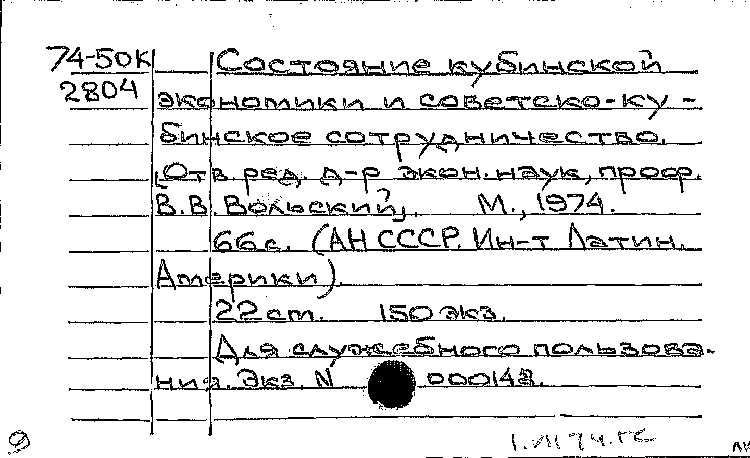 74-50К Состояние кубинской
2804 экономики и советско-ку-
бинское сотрудничество.
[Отв. ред. д-р экон. наук, проф.
В.В. Вольский]. М., 1974.
66 с. (АН СССР. Ин-т Латин.
Америки).
22 cm. 150 экз.
Для служебного пользова-
ния. Экз. N 000148.